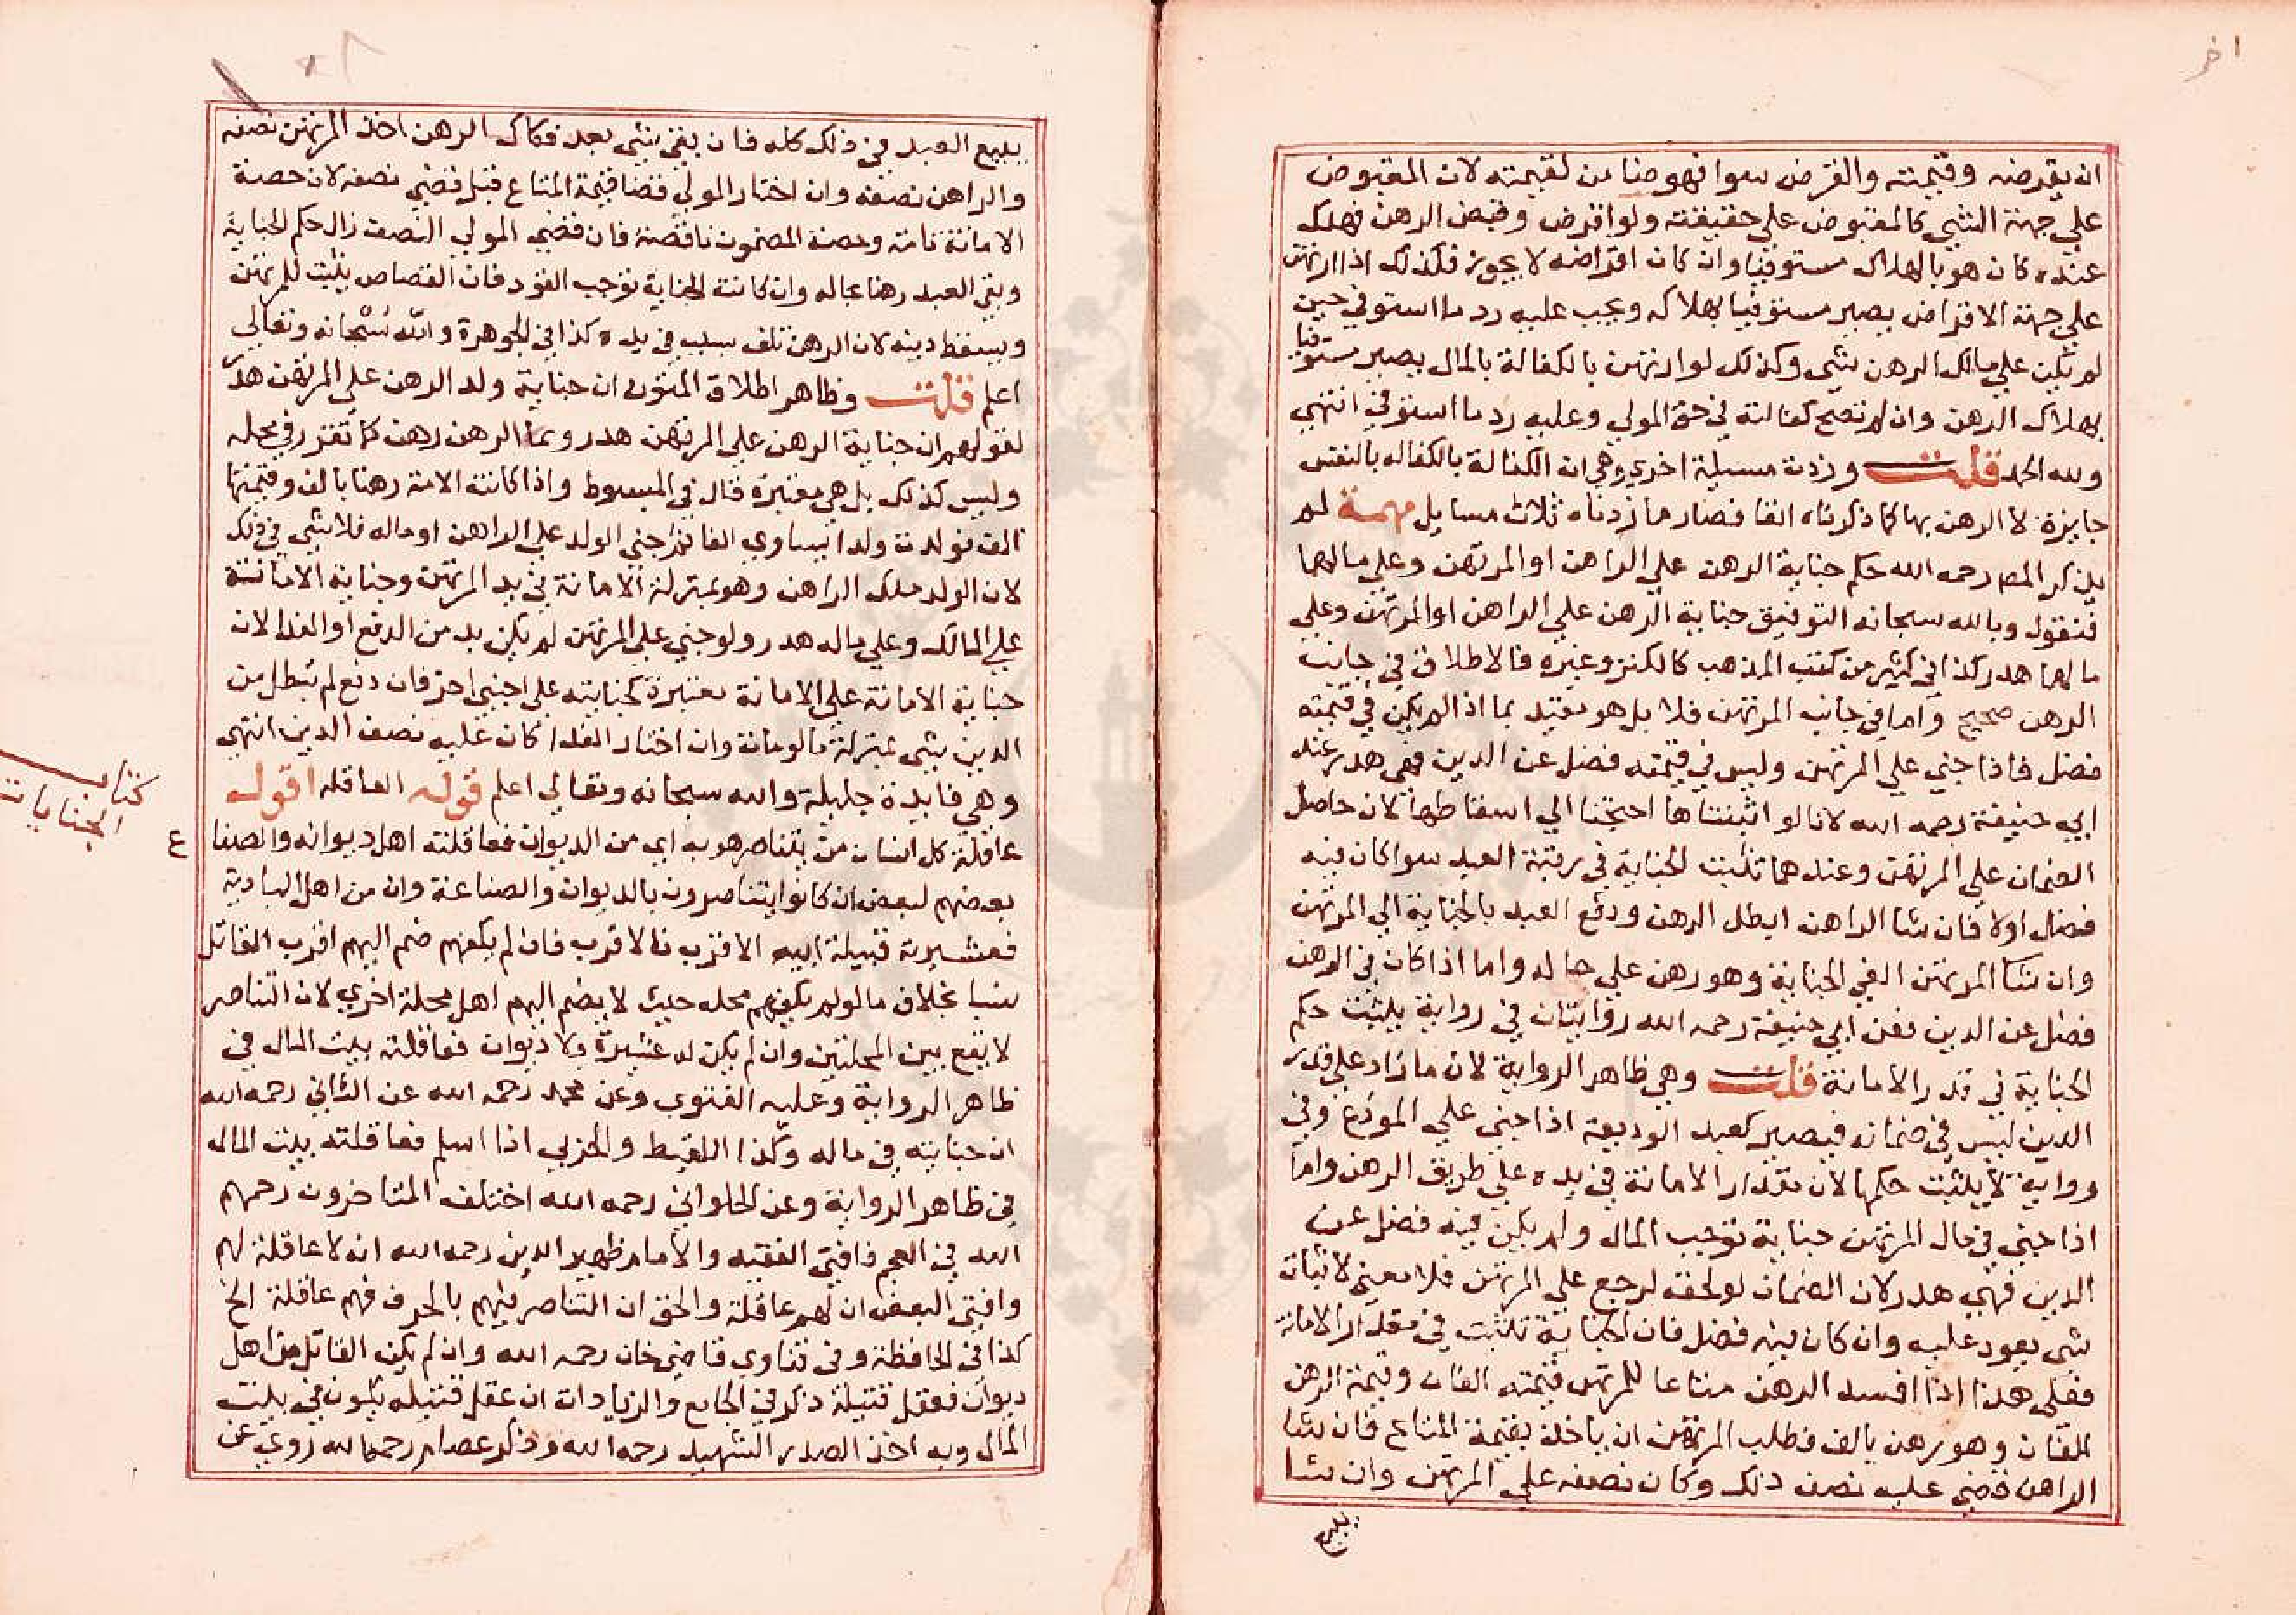 اخر
ان يقرضه وقيمته والقرض سوا فهو ضامن لقيمته لان المقبوض
علي جهة الشي كالمقبوض علي حقيقته ولو اقرض وقبض الرهن فهلك
عنده كان هو بالهلاك مستوفيا وان كان اقراضه لا يجوز فكذلك اذا ارتهن
علي جهة الاقراض يصير مستوفيا بهلاكه ويجب عليه رد ما استوفي حين
لم يكن علي مالك الرهن شي وكذلك لو ارتهن بالكفالة بالمال يصير مستوفيا
بهلاك الرهن وان لم تصح كفالته في حق المولي وعليه رد ما استوفي انتهي
ولله الحمد قلت وزدت مسيلة اخري وهي ان الكفالة بالكفاله بالنفس
جايزة لا الرهن بها كما ذكرناه انفا فصار ما زدناه ثلاث مسايل مهمة لم
يذكر المصـ رحمه الله حكم جناية الرهن علي الراهن او المرتهن وعلي مالهما
فنقول وبالله سبحانه التوفيق جناية الرهن علي الراهن او المرتهن وعلي
مالهما هدر كذا في كثير من كتب المذهب كالكنز وغيره فالاطلاق في جانب
الرهن صحيح واما في جانب المرتهن فلا بل هو مقيد بما اذا لم يكن في قيمته
فضل فاذا جني علي المرتهن وليس في قيمته فضل عن الدين فهي هدر عند
ابي حنيفة رحمه الله لانا لو اثبتناها احتجنا الي اسقاطها لان حاصل
الضمان علي المرتهن وعندهما تثبت الجناية في رقبة العبد سوا كان فيه
فضل اولا فان شا الراهن ابطل الرهن ودفع العبد بالجناية الي المرتهن
وان شا المرتهن الغي الجناية وهو رهن علي حاله واما اذا كان في الرهن
فضل عن الدين فعن ابي حنيفة رحمه الله روايتان في رواية يثبت حكم
الجناية في قدر الامانة قلت وهي ظاهر الرواية لان ما زاد علي قدر
الدين ليس في ضمانه فيصير كعبد الوديعة اذا جني علي المودع وفي
رواية لا يثبت حكمها لان مقدار الامانة في يده علي طريق الرهن واما
اذا جني في مال المرتهن جناية توجب المال ولم يكن فيه فضل عن
الدين فهي هدر لان الضمان لو لحقه لرجع علي المرتهن فلا معني لاثبات
شي يعود عليه وان كان فيه فضل فان الجناية تثبت في مقدار الامانة
فعلي هذا اذا افسد الرهن متاعا للمرتهن قيمته الفان وقيمة الرهن
الفان وهو رهن بالف فطلب المرتهن ان ياخذه بقيمة المتاع فان شا
الراهن قضي عليه نصف ذلك وكان نصفه علي المرتهن وان شا
يبيع
يبيع العبد في ذلك كله فان بقي شي بعد فكاك الرهن اخذ المرتهن نصفه
والراهن نصفه وان اختار المولي قضا قيمة المتاع قبل قضي نصفه لان حصة
الامانة تامة وحصة المضمون ناقصة فان قضي المولي النصف زال حكم الجناية
وبقي العبد رهنا بحاله وان كانت الجناية توجب القود فان القصاص يثبت للمرتهن
ويسقط دينه لان الرهن تلف بسبب في يده كذا في الجوهرة والله سبحانه وتعالي
اعلم قلت وظاهر اطلاق المتون ان جناية ولد الرهن علي المرتهن هدر
لقولهم ان جناية الرهن علي المرتهن هدر ونما الرهن رهن كما تقرر في محله
وليس كذلك بل هي معتبرة قال في المبسوط واذا كانت الامة رهنا بالف وقيمتها
الف فولدت ولدا يساوي الفا فجني الولد علي الراهن او ماله فلا شي في ذلك
لان الولد ملك الراهن وهو بمنزلة الامانة في يد المرتهن وجناية الامانة
علي المالك وعلي ماله هدر ولو جني علي المرتهن لم يكن بد من الدفع او الفدا لان
جناية الامانة علي الامانة معتبرة كجنايته علي اجنبي اخر فان دفع لم يبطل من
الدين شي بمنزلة ما لو مات وان اختار الفدا كان عليه نصف الدين انتهي
وهي فايدة جليلة والله سبحانه وتعالي اعلم قوله العاقله اقول
عاقلة كل انسان من يتناصر هو به اي من الديوان فعاقلته اهل ديوانه والصنا
ع
بعضهم لبعض ان كانوا يتناصرون بالديوان والصناعة وان من اهل البادية
فعشيرته قبيلة ابيه الاقرب فالاقرب فان لم يكفهم ضم اليهم اقرب القاتل
نسبا بخلاف ما لو لم يكفهم محله حيث لا يضم اليهم اهل محلة اخري لان التناصر
لا يقع بين المحلتين وان لم يكن له عشيرة ولا ديوان فعاقلته بيت المال في
ظاهر الرواية وعليه الفتوي وعن محمد رحمه الله عن الثاني رحمه الله
ان جنايته في ماله وكذا اللقيط والحربي اذا اسلم فعاقلته بيت المال
في ظاهر الرواية وعن الحلواني رحمه الله اختلف المتاخرون رحمهم
الله في العجم فافتي الفقيه والامام ظهير الدين رحمه الله انه لا عاقلة لهم
وافتي البعض ان لهم عاقلة والحق ان التناصر فيهم بالحرف فهم عاقلة الخ
كذا في الحافظة وفي فتاوي قاضي خان رحمه الله وان لم يكن القاتل من اهل
ديوان فعقل قتيله ذكر في الجامع والزيادات ان عقل قتيله يكون في بيت
المال وبه اخذ الصدر الشهيد رحمه الله وذكر عصام رحمه الله روي عن
كتاب
الجنايات